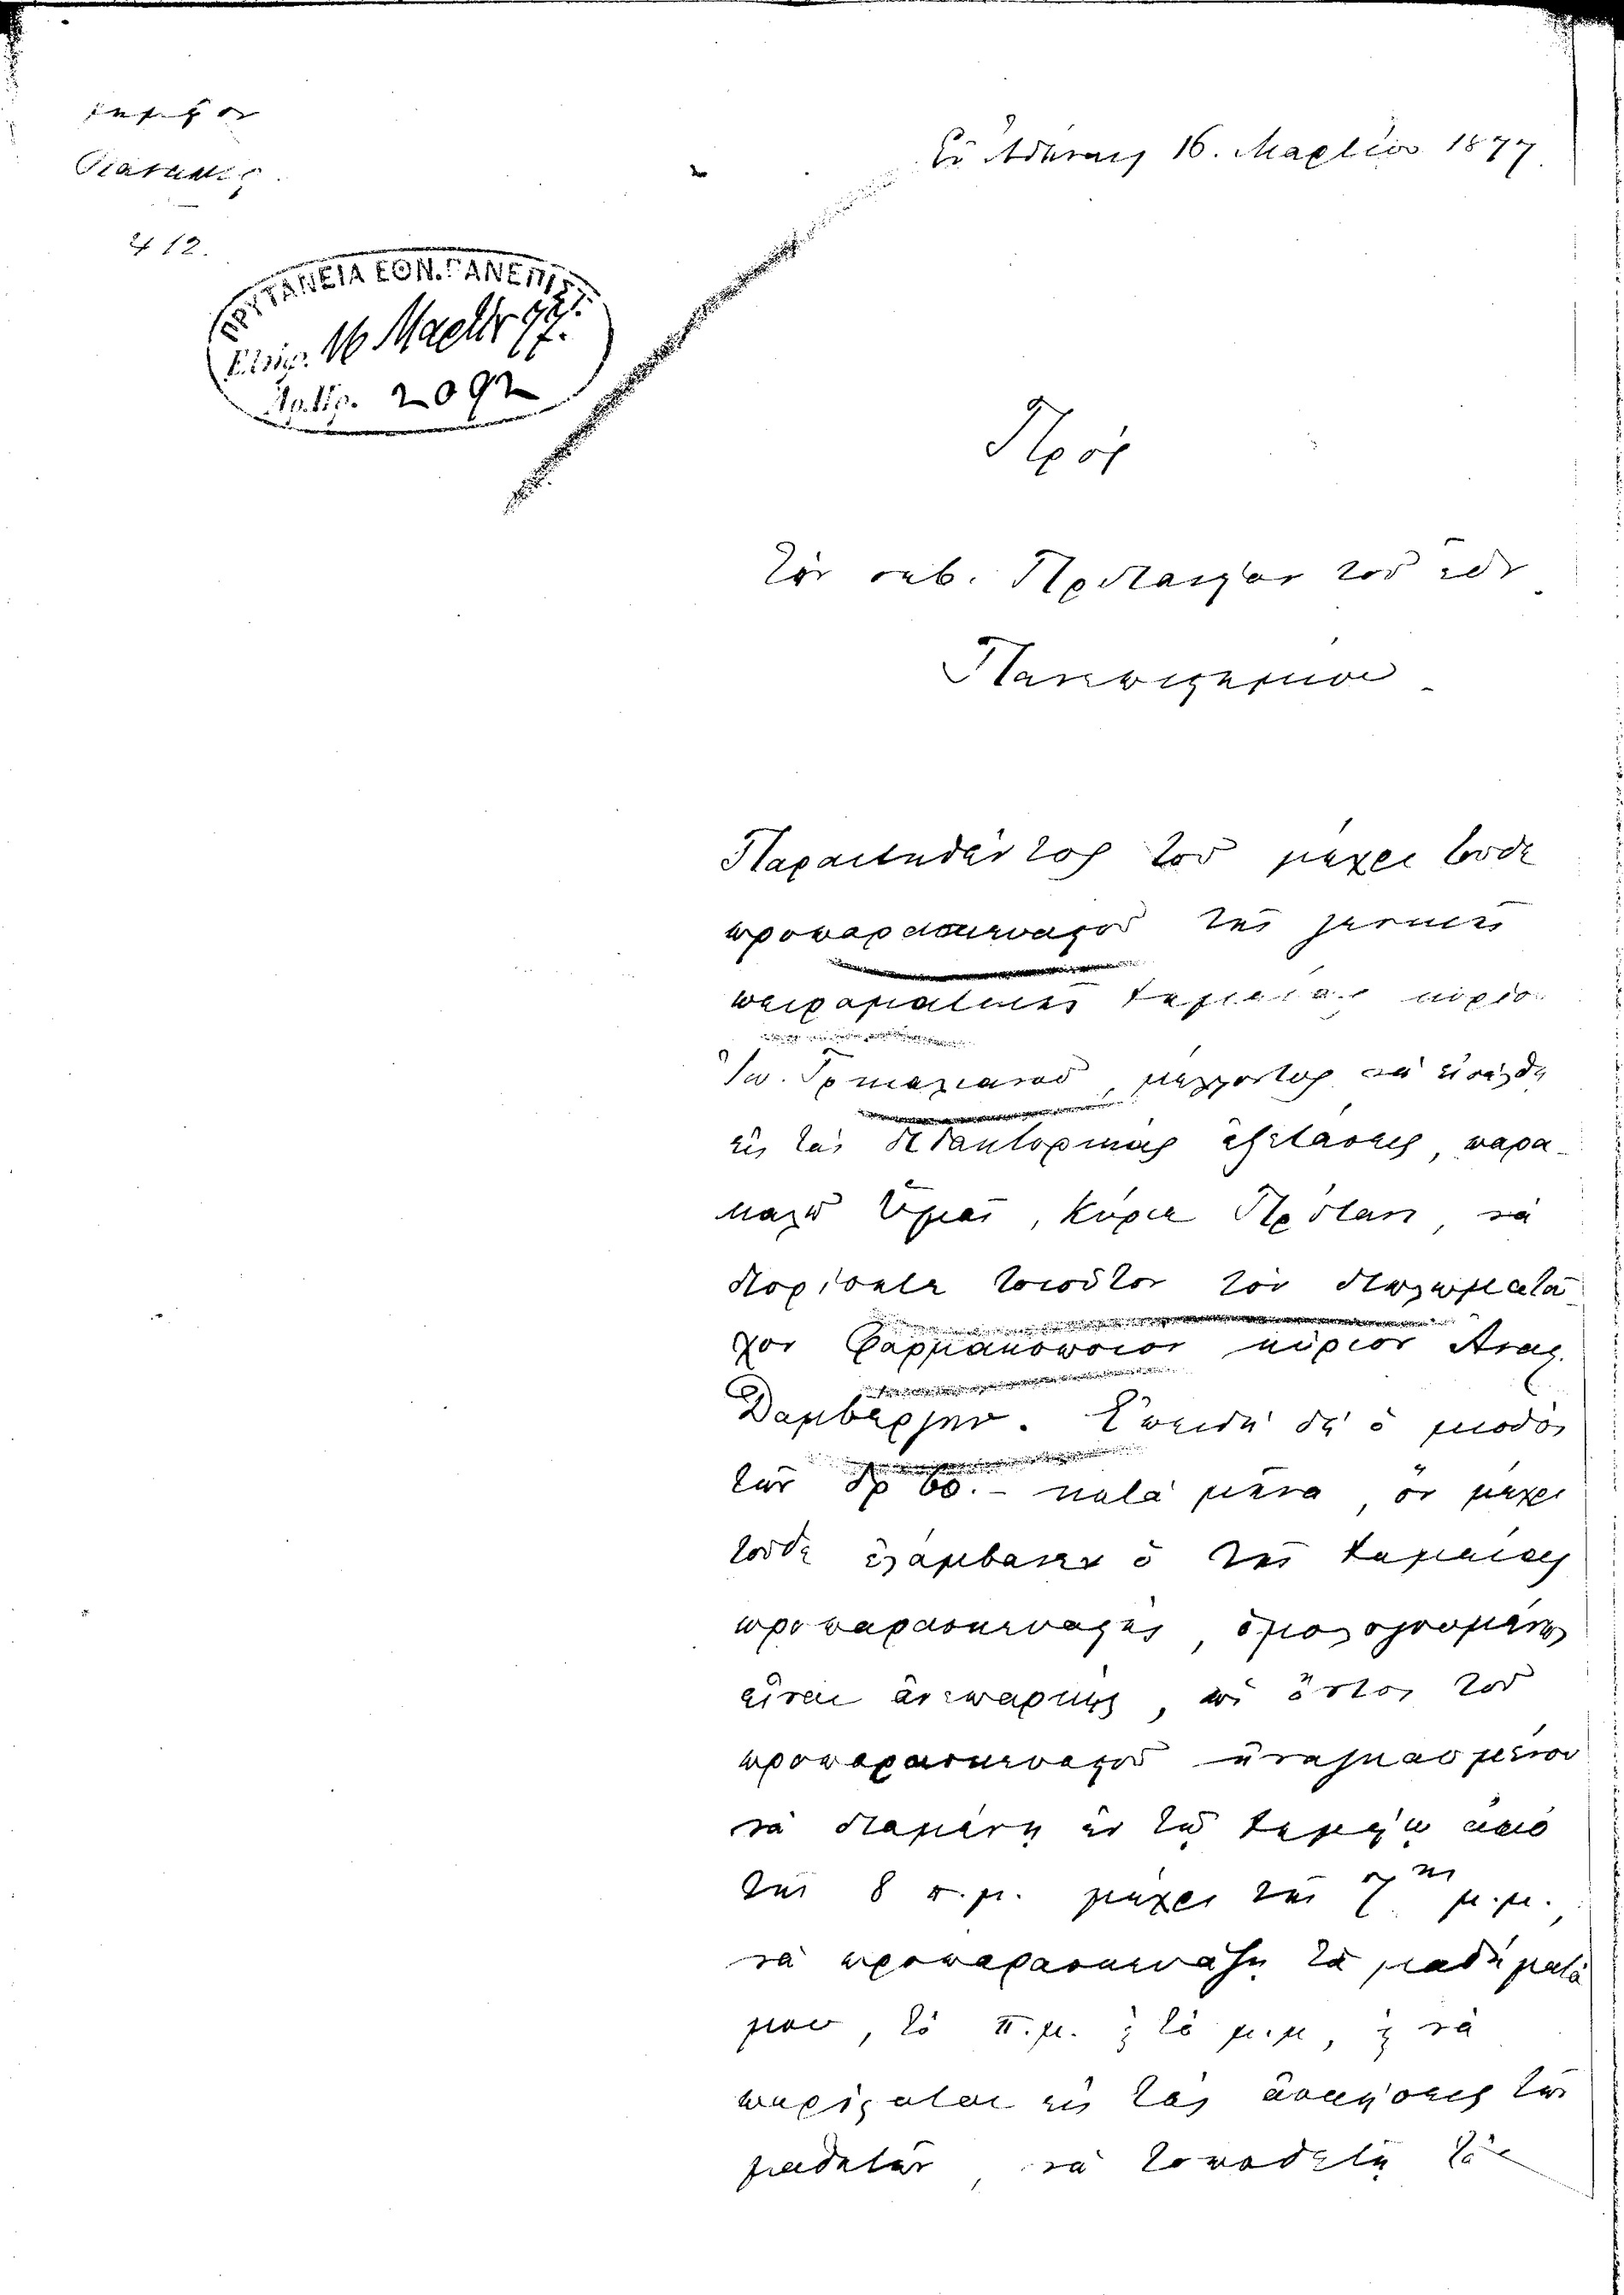 Ἐν Ἀθήναις 16. Μαρτίου 1877
412.
ΠΡΥΤΑΝΕΙΑ ΕΘΝ. ΠΑΝΕΠΙΣΤ.
16 Μαρτίου 77.
Ἀρ. Πρ. 2092
Πρὸς
Τὸν σεβ. Πρύτανιν τοῦ ἐθν.
Πανεπιστημίου
Παραιτηθέντος τοῦ μέχρι τοῦδε
προπαρασκευαστοῦ τῆς γενικῆς
πειραματικῆς χημείας κυρίου
Ἰω. μέλλοντος νὰ εἰσέλθῃ
εἰς τὰς διδακτορικὰς ἐξετάσεις, παρα-
καλῶ Ὑμᾶς, Κύριε Πρύτανι, νὰ
διορίσητε τοιοῦτον τὸν διπλωματοῦ-
χον φαρμακοποιὸν κύριον Ἀναστ.
Δαμβέργην. Ἐπειδὴ δὲ ὁ μισθὸς
τῶν δρ 60.- κατὰ μῆνα, ὃν μέχρι
τοῦδε ἐλάμβανεν ὁ τῆς χημείας
προπαρασκευαστής, ὁμολογουμένως
εἶναι ἀνεπαρκής, ὡς ὄντος τοῦ
προπαρασκευαστοῦ ἠναγκασμένου
νὰ διαμένῃ ἐν τῷ χημείῳ ἀπὸ
τῆς 8 π.μ. μέχρι τῆς 7ης μ.μ.,
νὰ προπαρασκευάζῃ τὰ μαθήματά
μου, τὸ π.μ. ἢ τὸ μ.μ, ἢ νὰ
παρίσταται εἰς τὰς ἀσκήσεις τῶν
μαθητῶν, νὰ τοποθετῇ τὰ